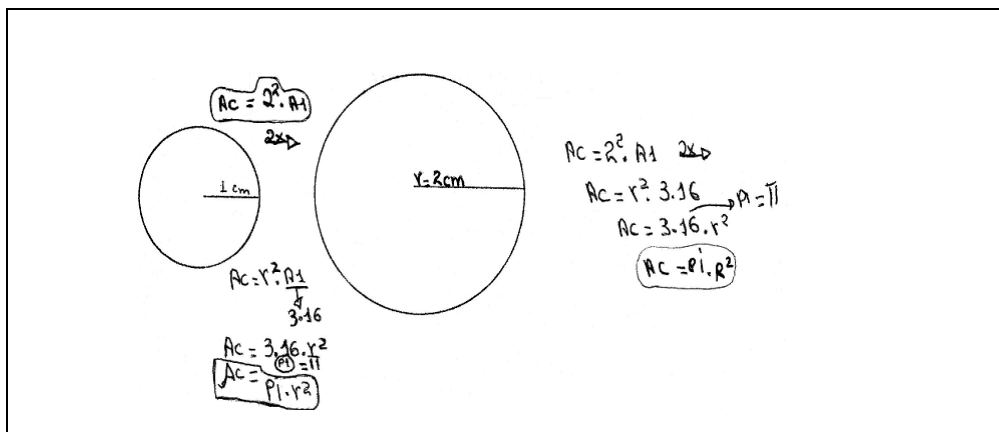 Ac = 2². A1
2x
1 cm
r=2cm
Ac = r². A1
3.16
Ac = 3.16. r²
Pi = π
Ac = Pi. r²
Ac = 2². A1 2x
Ac = r². 3.16
Pi = π
Ac = 3.16. r²
Ac = Pi. R²